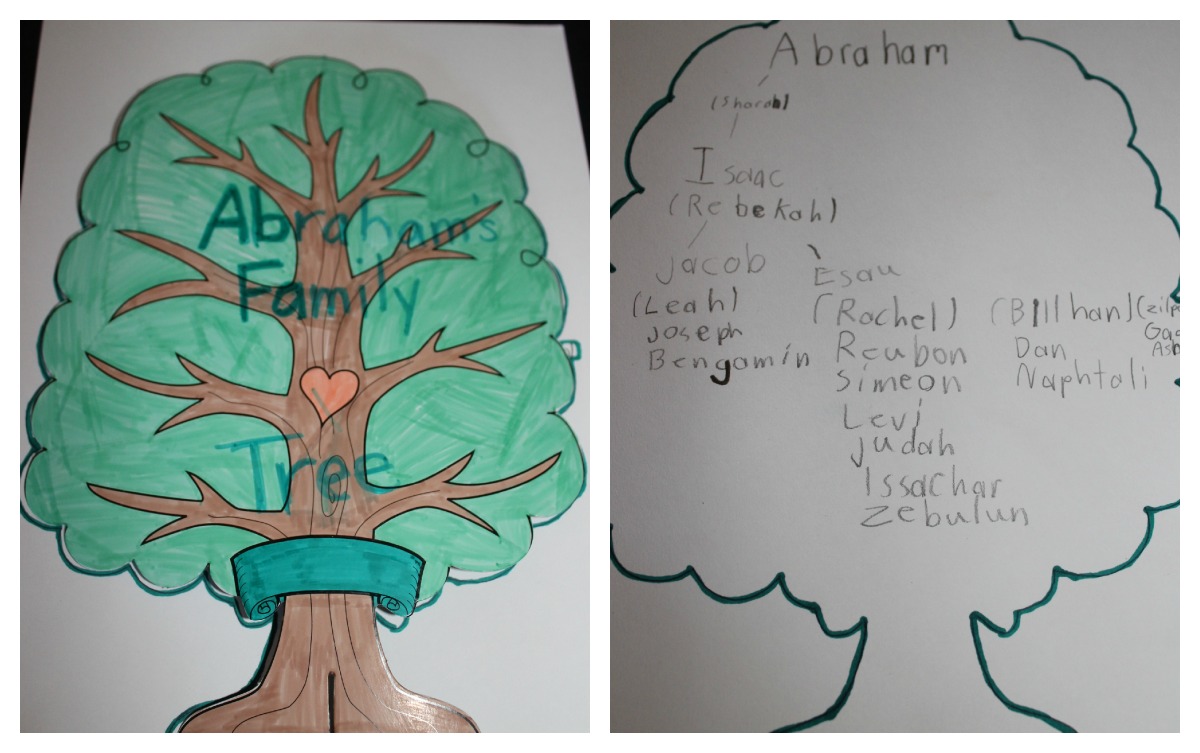 Abraham's
Family
Tree
Abraham
(Sharah)
Isaac
(Rebekah)
Jacob
Esau
(Leah)
Joseph
Bengamin
(Rachel)
Reubon
Simeon
Levi
Judah
Issachar
Zebulun
(Billhan)
Dan
Naphtali